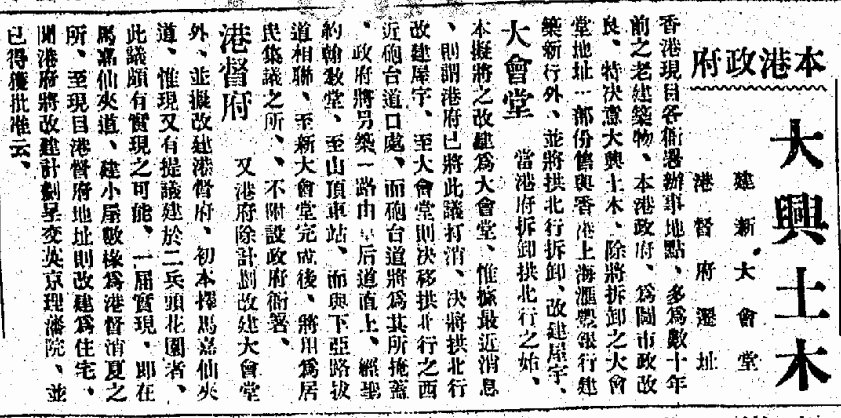 本港政府
大興土木
建新大會堂
港督府遷址
香港現目各衙署辦事地點、多爲數十年
前之老建築物、本港政府、爲圖市政改
良、特决意大興土木、除將拆卸之大會
堂地址一部份售與香港上海滙豐銀行建
築新行外、並將拱北行拆卸、改建屋宇、
大會堂 當港府拆卸拱北行之始、
本擬將之改建爲大會堂、惟據最近消息
、則謂港府已將此議打消、决將拱北行
改建屋宇、至大會堂則决移拱北行之西
近砲台道口處、而砲台道將爲其所掩蓋
、政府將另築一路由皇后道直上、經聖
約翰教堂、至山頂車站、而與下亞路拔
道相聯、至新大會堂完成後、將用爲居
民集議之所、、不附設政府衙署、
港督府 又港府除計劃改建大會堂
外、並擬改建港督府、初本擇馬嘉仙夾
道、惟現又有提議建於二兵頭花園者、
此議頗有實現之可能、一屆實現、即在
馬嘉仙夾道、建小屋數椽爲港督消夏之
所、至現目港督府地址則改建爲住宅、
聞港府將改建計劃呈交英京理藩院、並
已得獲批准云、